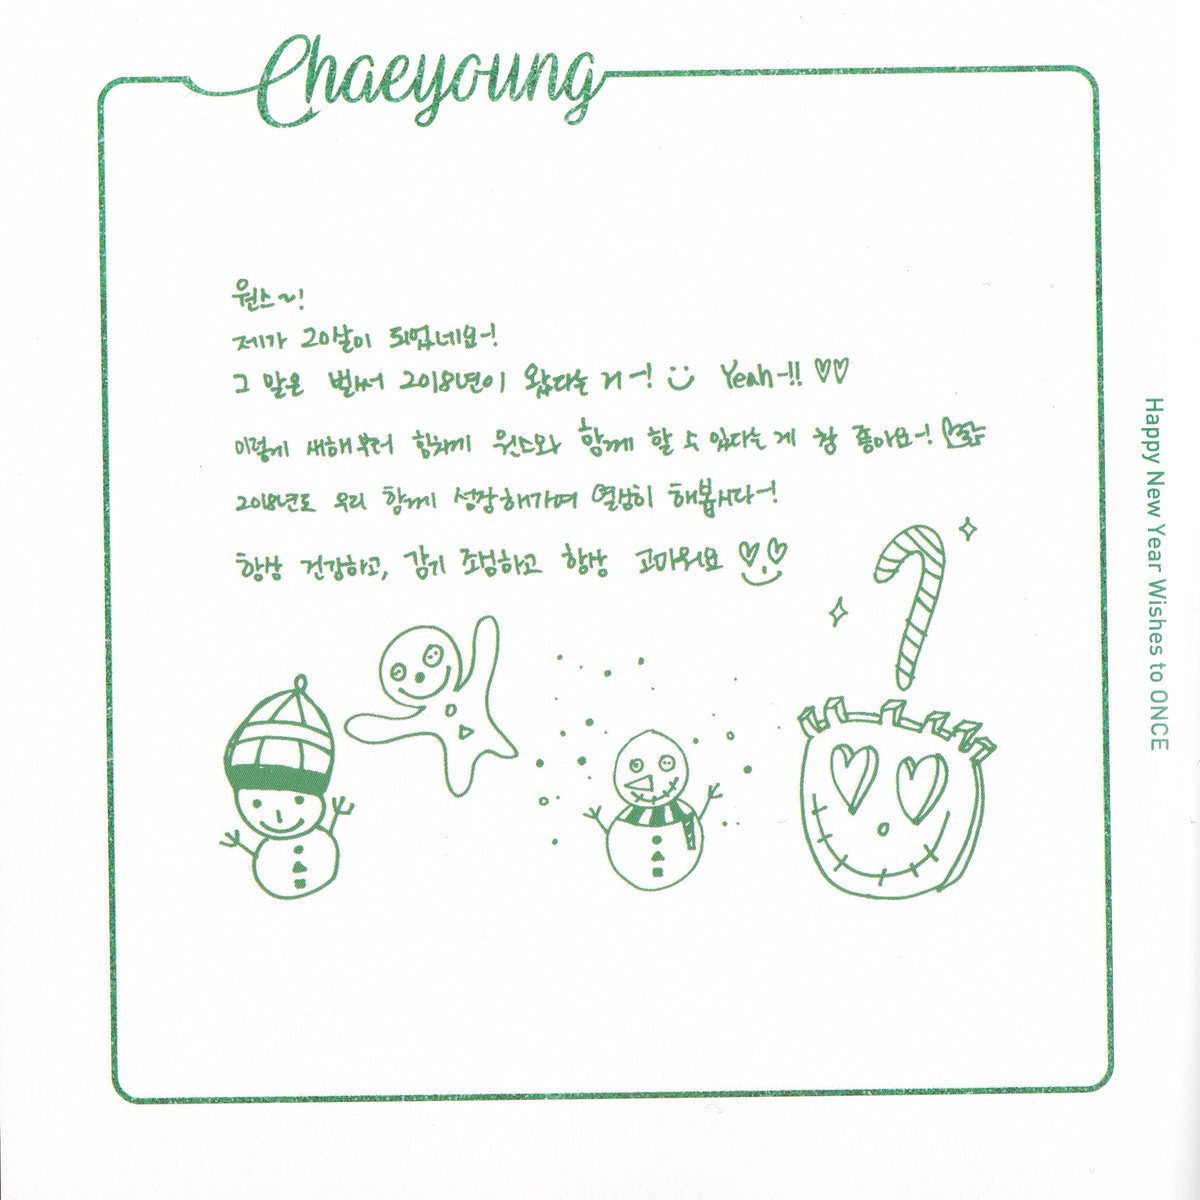 Chaeyoung
원스~!
제가 20살이 되었네요~!
그 말은 벌써 2018년이 왔다는 거~! Yeah~!! ♡♡
이렇게 새해부터 힘차게 원스와 함께 할 수 있다는 게 참 좋아요~!
2018년도 우리 함께 성장해가며 열심히 해봅시다~!
항상 건강하고, 감기 조심하고 항상 고마워요
Happy New Year Wishes to ONCE